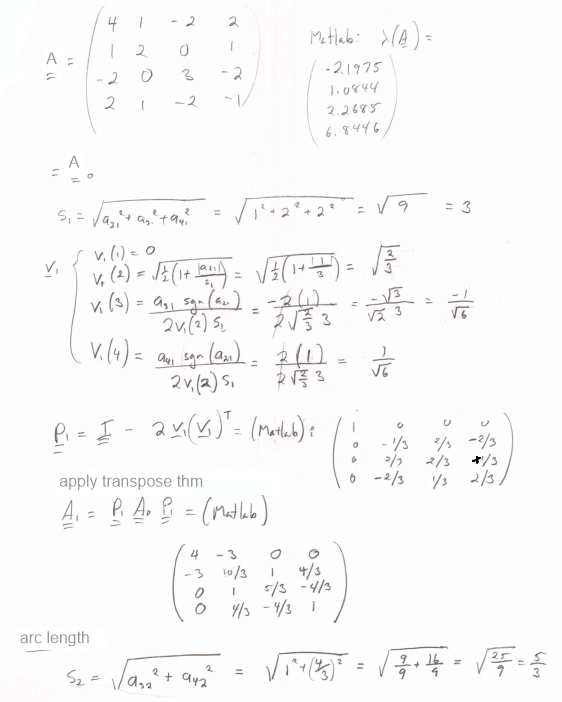 A = ( 4 1 -2 2
1 2 0 1
-2 0 3 -2
2 1 -2 -1 )
Matlab: λ(A) =
( -2.1975
1.0844
2.2685
6.8446 )
= A₀
S₁ = √(a₂₁² + a₃₁² + a₄₁²) = √(1² + 2² + 2²) = √9 = 3
V₁ { V₁(1) = 0
V₁(2) = √(½(1 + |a₂₁|/S₁)) = √(½(1 + |1|/3)) = √(2/3)
V₁(3) = a₃₁ sgn(a₂₁) / 2V₁(2) S₁ = -2(1) / 2√(2/3) 3 = -√3 / √2 3 = -1/√6
V₁(4) = a₄₁ sgn(a₂₁) / 2V₁(2) S₁ = 2(1) / 2√(2/3) 3 = 1/√6
P₁ = I - 2 V₁(V₁)ᵀ = (Matlab):
( 1 0 0 0
0 -1/3 2/3 -2/3
0 2/3 2/3 +1/3
0 -2/3 1/3 2/3 )
apply transpose thm
A₁ = P₁ A₀ P₁ = (Matlab)
( 4 -3 0 0
-3 10/3 1 4/3
0 1 5/3 -4/3
0 4/3 -4/3 1 )
arc length
S₂ = √(a₃₂² + a₄₂²) = √(1² + (4/3)²) = √(9/9 + 16/9) = √(25/9) = 5/3